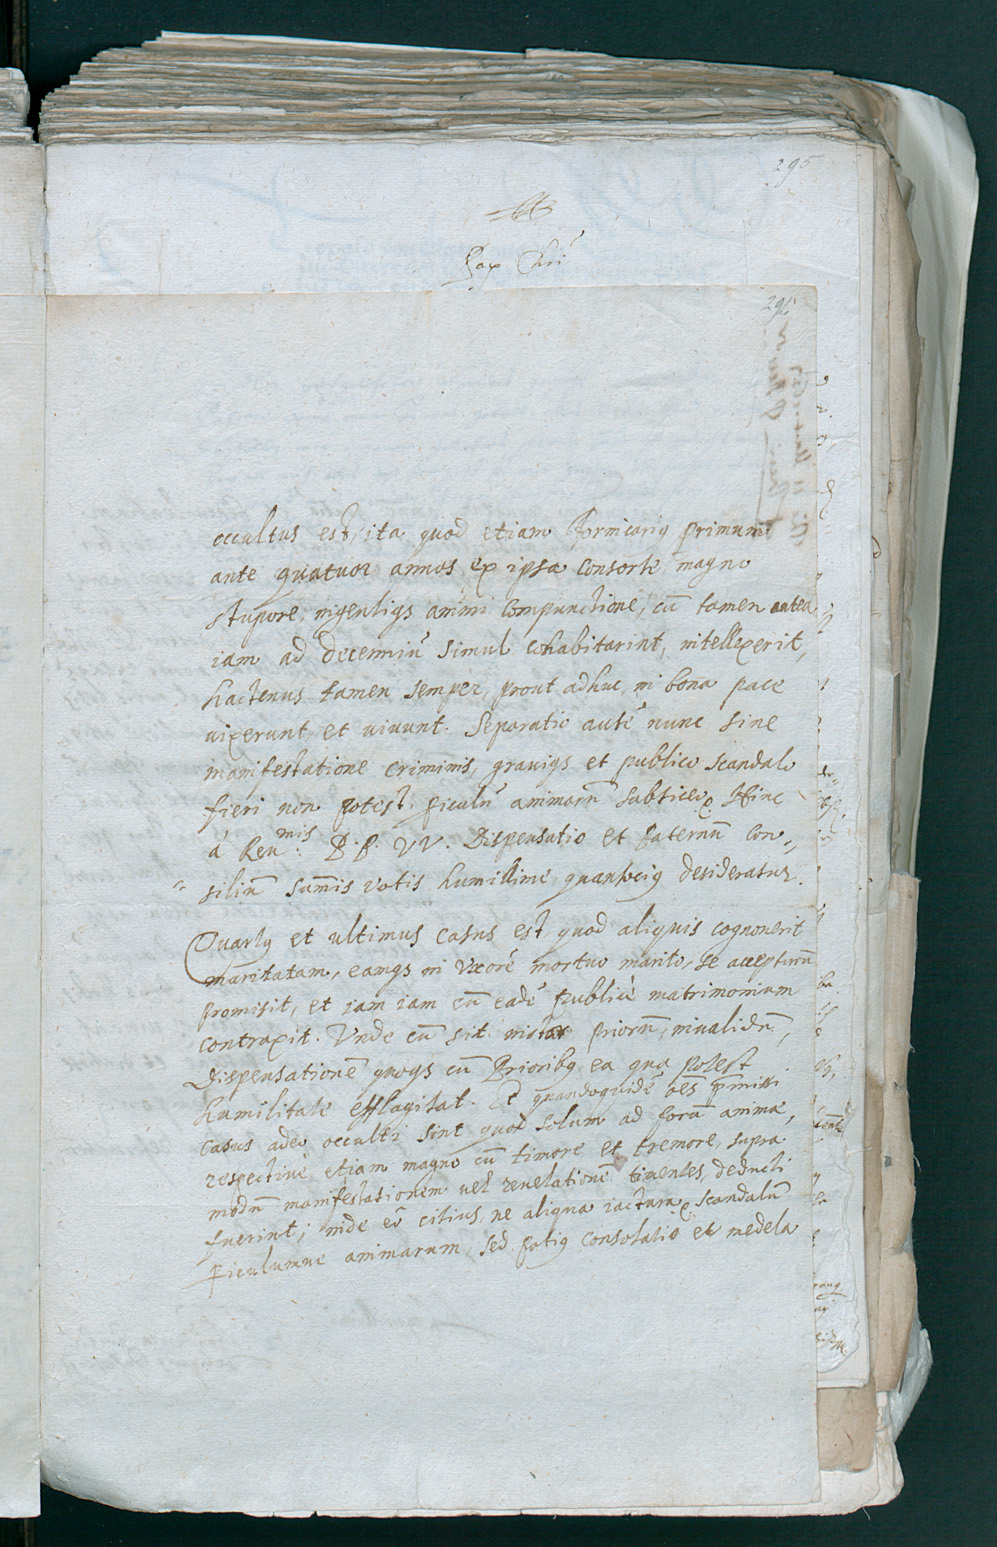 295
Pax Chri
294
occultus est, ita quod etiam fornicariq primum
ante quatuor annos ex ipsa consorte, magno
stupore, ingentiqs animi compunctione, cũ tamen antea
iam ad decenniũ simul cohabitarint, intellexerit,
hactenus tamen semper, prout adhuc, in bona pace
vixerunt, et vivunt. Separatio autē nunc sine
manifestatione criminis, graviqs et publico scandalo
fieri non potest, piculũ animarũ subticeo. Hinc
à Reumis. P.P. VV. Dispensatio et paternũ con„
„silium sumis votis humillime, quantociq desideratur.
Quartq et ultimus casus est, quod aliquis cognoverit
maritatam, eamqs in Vxorē mortuo marito, se accepturũ
promisit, et iam iam cũ eadē publicè matrimonium
contraxit. Vnde cũ sit priorũ, invalidũ,
Dispensationē quoqs cũ Prioribq ea qua potest
humilitate efflagitat. Et quandoquidē oēs pmissi
casus adeo occulti sint, quod solum ad forũ animæ,
respectivè etiam magno cũ timore et tremore, supra
modũ manifestationem vel revelationē timentes, deducti
fuerint; inde eò citius, ne aliqua iactura, scandalũ
piculumue animarum, sed potiq consolatio et medela